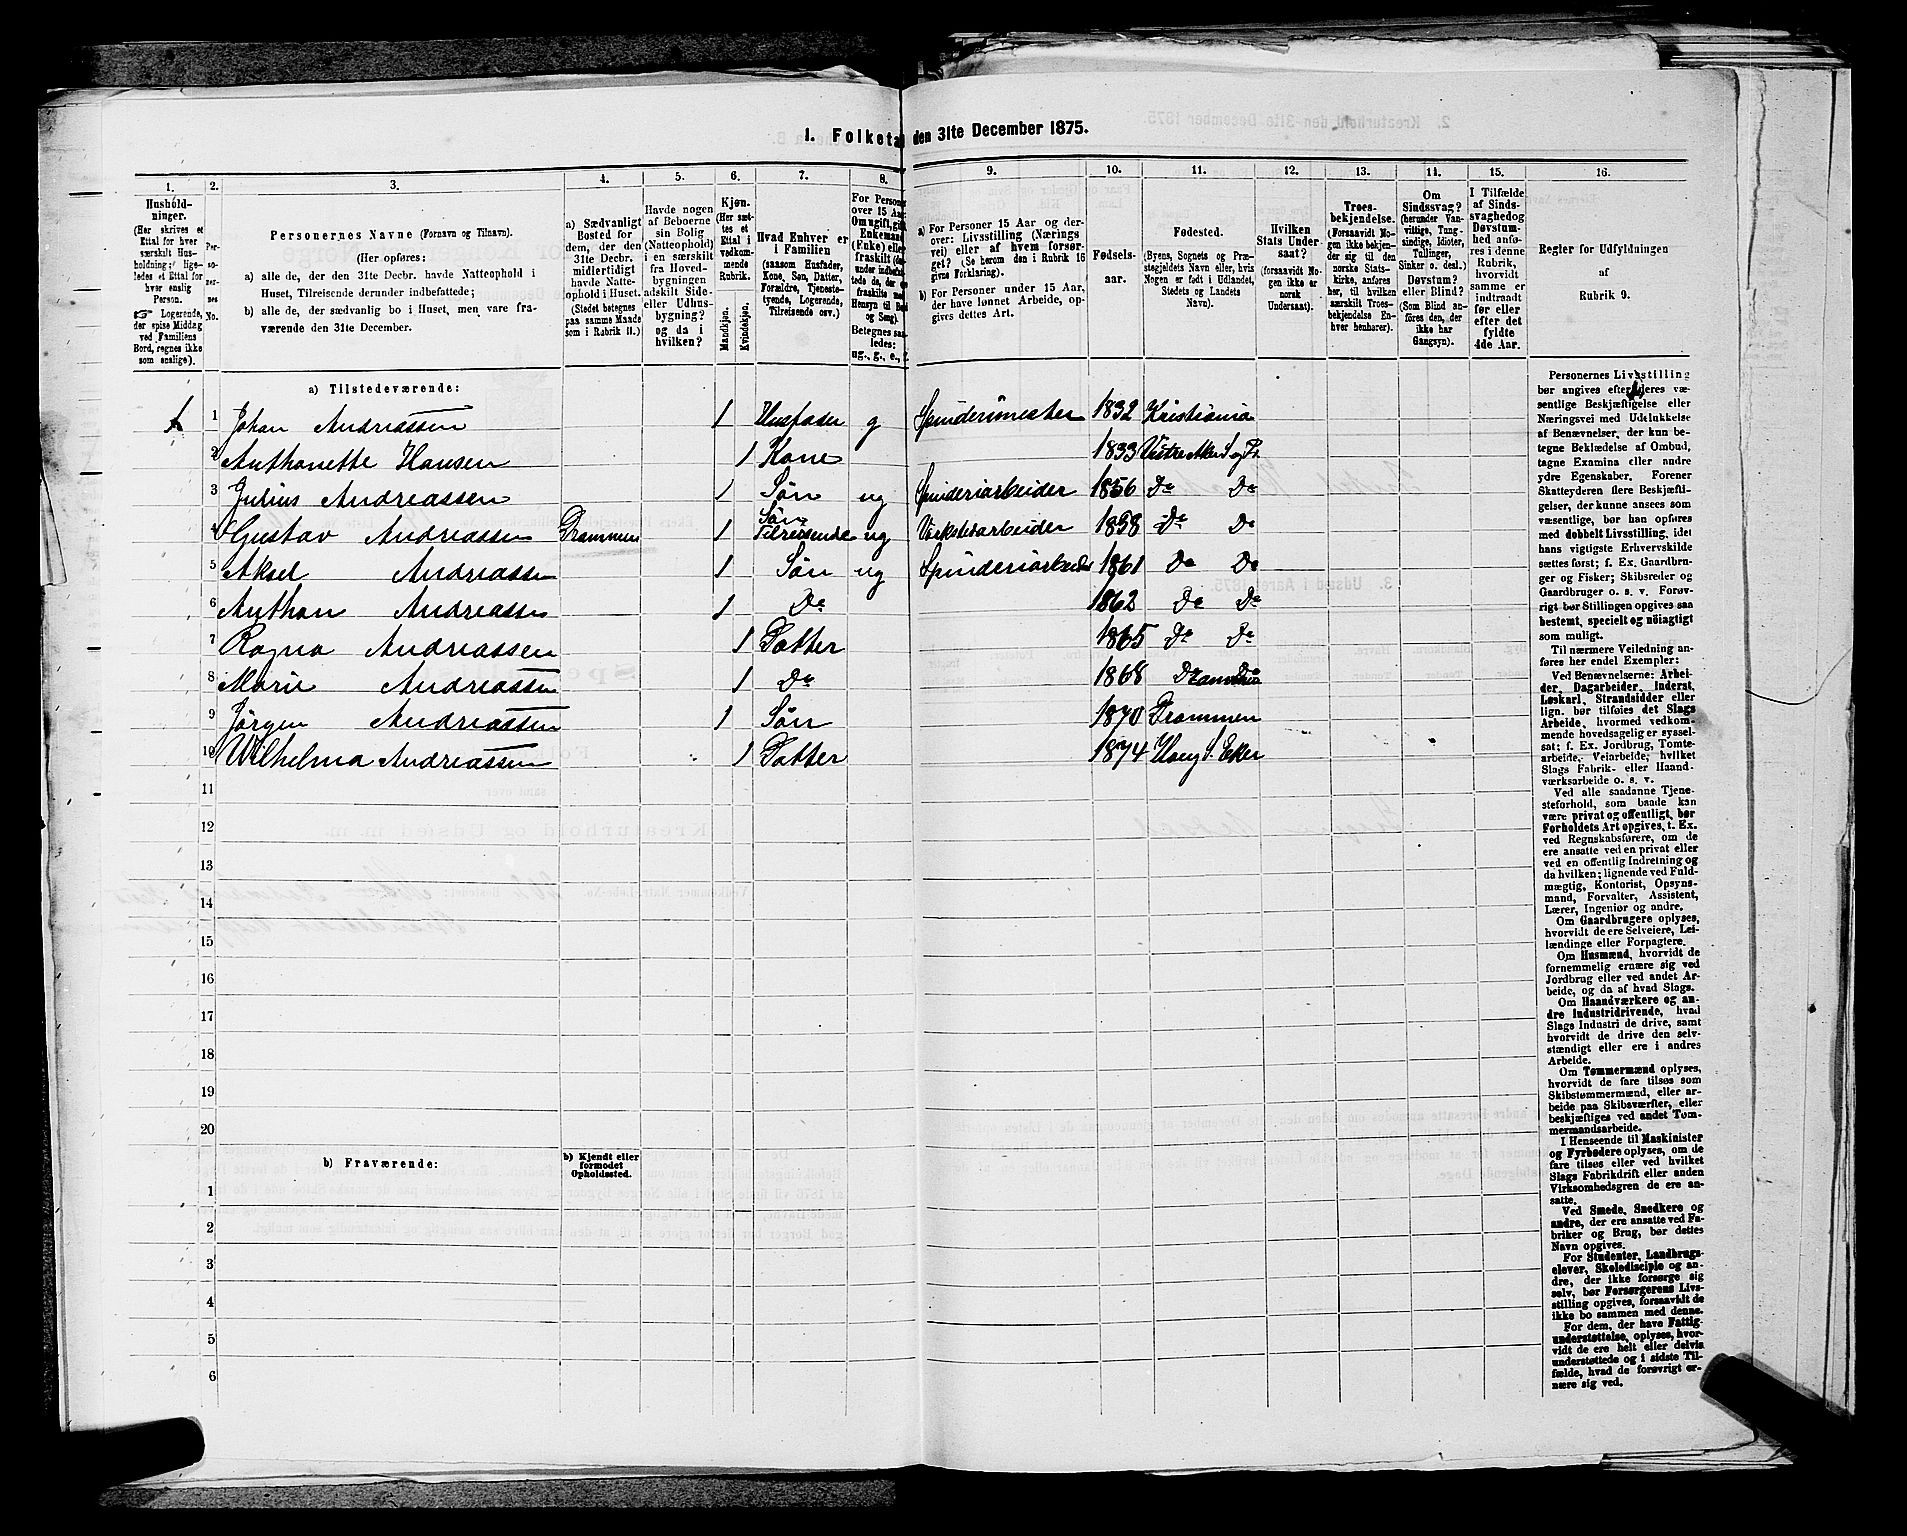 1. Folketal den 31te December 1875.
1. 2. 3. 4. 5. 6. 7. 8. 9. 10. 11. 12. 13. 14. 15. 16.
Hushold-
ninger.
(Her skrives et
Ettal for hver
særskilt Hus-
holdning; lige-
ledes et Ettal for
hver enslig
Person.
☞ Logerende,
der spise Middag
ved Familiens
Bord, regnes ikke
som enslige).
Per-
so-
ner-
nes
No.
Personernes Navne (Fornavn og Tilnavn).
(Her opføres:
a) alle de, der den 31te Decbr. havde Natteophold i
Huset, Tilreisende derunder indbefattede;
b) alle de, der sædvanlig bo i Huset, men vare fra-
værende den 31te December.
a) Sædvanligt
Bosted for
dem, der den
31te Decbr.
midlertidigt
havde Natte-
ophold i Huset.
(Stedet betegnes
paa samme Maade
som i Rubrik 11.)
Havde nogen
af Beboerne
sin Bolig
(Natteophold)
i en særskilt
fra Hoved-
bygningen
adskilt Side-
eller Udhus-
bygning?
og da i
hvilken?
Kjøn.
(Her sæt-
tes et
Ettal i
vedkom-
mende
Rubrik.
Mandkjøn.
Kvindekjøn.
Hvad Enhver er
i Familien
(saasom Husfader,
Kone, Søn, Datter,
Forældre, Tjeneste-
tyende, Logerende,
Tilreisende osv.)
For Personer
over 15 Aar:
Om ugift, gift,
Enkemand
(Enke) eller
fraskilt
Betegnes saa-
ledes:
ug., g., e.,
a) For Personer 15 Aar og der-
over: Livsstilling (Nærings
vei) eller af hvem forsør-
get? (Se herom den i Rubrik 16
givne Forklaring).
b) For Personer under 15 Aar,
der have lønnet Arbeide, op-
gives dettes Art.
Fødsels-
aar.
Fødested.
(Byens, Sognets og Præ-
stegjeldets Navn eller, hvis
Nogen er født i Udlandet,
Stedets og Landets
Navn).
Hvilken
Stats Under-
saat?
(forsaavidt No-
gen ikke er
norsk
Undersaat).
Troes-
bekjendelse.
(Forsaavidt No-
gen ikke bekjen-
der sig til den
norske Stats-
kirke, anføres
her, til hvilken
særskilt Troes-
bekjendelse En-
hver henhører).
Om
Sindssvag?
(herunder Van-
vittige, Tung-
sindige, Idioter,
Tullinger,
Sinker o. desl.)
Døvstum?
eller Blind?
(Som Blind an-
føres den, der
ikke har
Gangsyn).
I Tilfælde
af Sinds-
svaghed og
Døvstum-
hed anfø-
res i denne
Rubrik,
hvorvidt
samme er
indtraadt
før eller
efter det
fyldte
4de Aar.
Regler for Udfyldningen
af
Rubrik 9.
a) Tilstedeværende:
1 1 Johan Andreassen 1 Husfader g Spinderimester 1832 Kristiania
2 Anthonette Hansen 1 Kone 1833 Vestre Aker S og P.
3 Julius Andreassen 1 Søn ug Spinderiarbeider 1856 Do Do
4 Gustav Andreassen Drammen 1 Søn Tilreisende ug Værkstedarbeider 1858 Do Do
5 Aksel Andreassen 1 Søn ug Spinderiarbeider 1861 Do Do
6 Anthon Andreassen 1 Do 1862 Do Do
7 Ragna Andreassen 1 Datter 1865 Do Do
8 Marie Andreassen 1 Do 1868
9 Jørgen Andreassen 1 Søn 1870 Drammen
10 Wilhelmа Andreassen 1 Datter 1874 Haug S. Eker
11
12
13
14
15
16
17
18
19
20
b) Fraværende:
b) Kjendt eller
formodet
Opholdssted.
1
2
3
4
5
6
Personernes Livsstilling
bør angives efter deres væ-
sentlige Beskjæftigelse eller
Næringsvei med Udelukkelse
af Benævnelser, der kun be-
tegne Beklædelse af Ombud,
tagne Examina eller andre
ydre Egenskaber. Forener
Skatteyderen flere Beskjæfti-
gelser, der kunne ansees som
væsentlige, bør han opføres
med dobbelt Livsstilling, idet
hans vigtigste Erhvervskilde
sættes først; f. Ex. Gaardbru-
ger og Fisker; Skibsreder og
Gaardbruger o. s. v. Forøv-
rigt bør Stillingen opgives saa
bestemt, specielt og nøiagtigt
som muligt.
Til nærmere Veiledning an-
føres her endel Exempler:
Ved Benævnelserne: Arbei-
der, Dagarbeider, Inderst,
Løskarl, Strandsidder eller
lign. bør tilføies det Slags
Arbeide, hvormed vedkom-
mende hovedsagelig er syssel-
sat; f. Ex. Jordbrug, Tomte-
arbeide, Veiarbeide, hvilket
Slags Fabrik- eller Haand-
værksarbeide o. s. v.
Ved alle saadanne Tjene-
steforhold, som baade kan
være privat og offentligt, bør
Forholdets Art opgives, t. Ex.
ved Regnskabsførere, om de
ere ansatte ved en privat eller
ved en offentlig Indretning og
da hvilken; lignende ved Fuld-
mægtig, Kontorist, Opsyns-
mand, Forvalter, Assistent,
Lærer, Ingeniør og andre.
Om Gaardbrugere oplyses,
hvorvidt de ere Selveiere, Lei-
lændinge eller Forpagtere.
Om Husmænd, hvorvidt de
fornemmelig ernære sig ved
Jordbrug eller ved andet Ar-
beide, og da af hvad Slags.
Om Haandværkere og an-
dre Industridrivende, hvad
Slags Industri de drive, samt
hvorvidt de drive den selv-
stændigt eller ere i andres
Arbeide.
Om Tømmermænd oplyses,
hvorvidt de fare tilsøs som
Skibstømmermænd, eller ar-
beide paa Skibsværfter, eller
beskjæftiges ved andet Tøm-
mermandsarbeide.
I Henseende til Maskinister
og Fyrbødere oplyses, om de
fare tilsøs eller ved hvilket
Slags Fabrikdrift eller anden
Virksomhedsgren de ere an-
satte.
Ved Smede, Snedkere og
andre, der ere ansatte ved Fa-
briker og Brug, bør dettes
Navn opgives.
For Studenter, Landbrugs-
elever, Skoledisciple og an-
dre, der ikke forsørge sig
selv, bør Forsørgerens Livs-
stilling opgives, forsaavidt de
ikke bo sammen med denne.
For dem, der have Fattig-
understøttelse, oplyses, hvor-
vidt de ere helt eller delvis
understøttede og i sidste Til-
fælde, hvad de forøvrigt er-
nære sig ved.